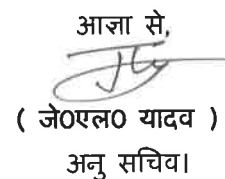 आज्ञा से,
( जे0एल0 यादव )
अनु सचिव।